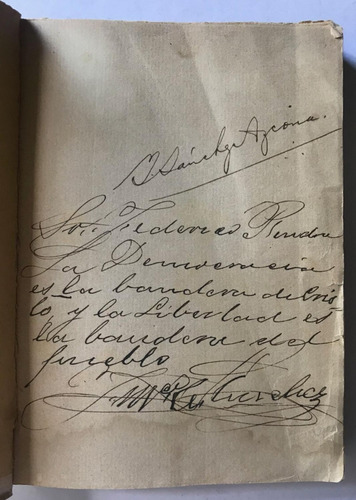 Sánchez Azcona.
Sr. Federico Rendon
La Democracia
es la bandera de Cris
to, y la Libertad es
la bandera del
pueblo
Sanchez